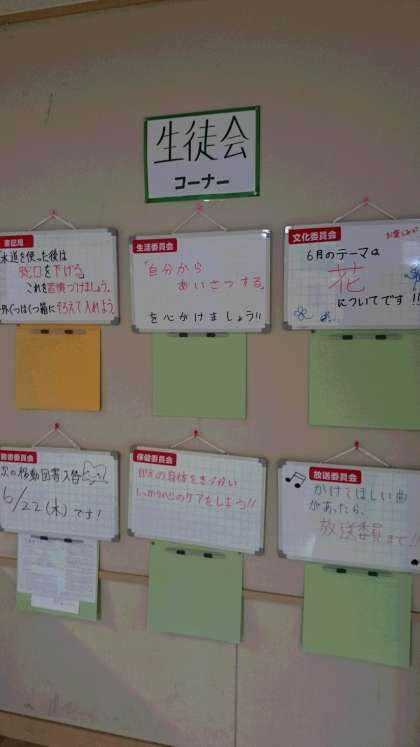 生徒会
コーナー
書記局
水道を使った後は
蛇口を下げる。
これを習慣づけましょう。
外ぐつはくつ箱にそろえて入れよう
生活委員会
「自分から
あいさつする。
を心がけましょう!!
文化委員会
6月のテーマは
花
についてです!!
図書委員会
次の移動図書入替
6/22(木)です!
保健委員会
自分の身体をきづかい
しっかり心のケアをしよう!!
放送委員会
かけてほしい曲
があったら、
放送委員まで!!